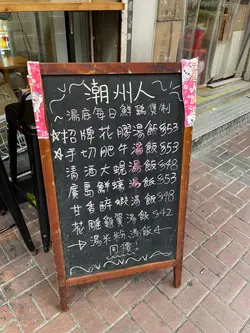 潮州人
湯底每日鮮雞煲制
招牌花膠湯飯 $53
手切肥牛湯飯 $53
清酒大蜆湯飯 $48
廣島鮮蠔湯飯 $53
甘香醉蝦湯飯 $48
花雕雞翼湯飯 $42
湯米粉湯飯
同價!